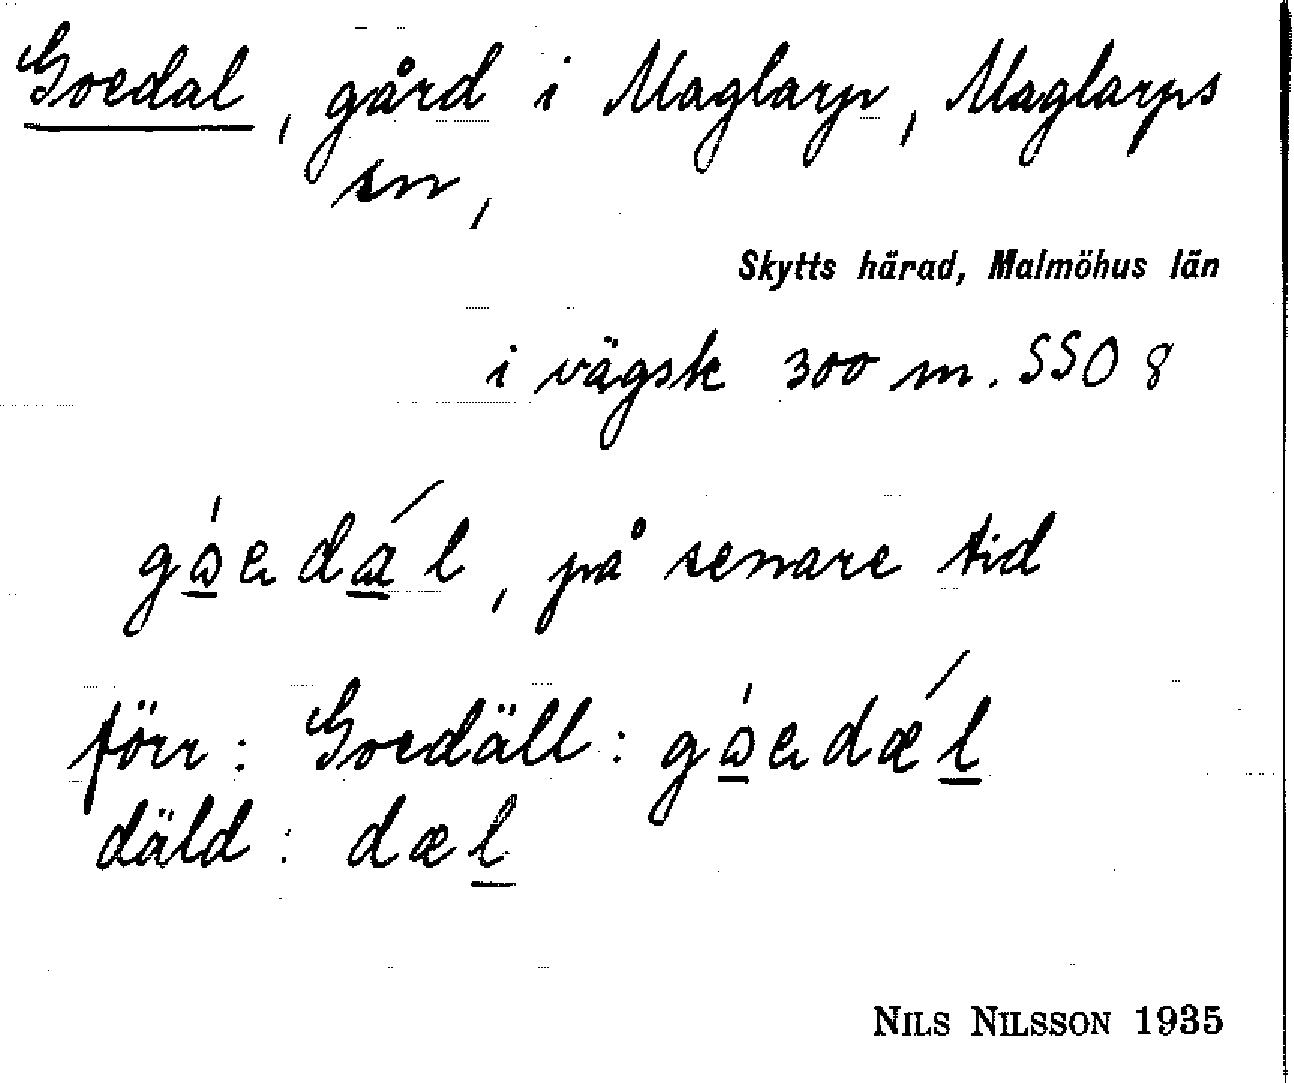 Goedal, gård i Maglarp, Maglarps
sn,
Skytts härad, Malmöhus län
i vägsk 300 m. SSO 8
på senare tid
förr: Goedäll:
däld: dæl
NILS NILSSON 1935